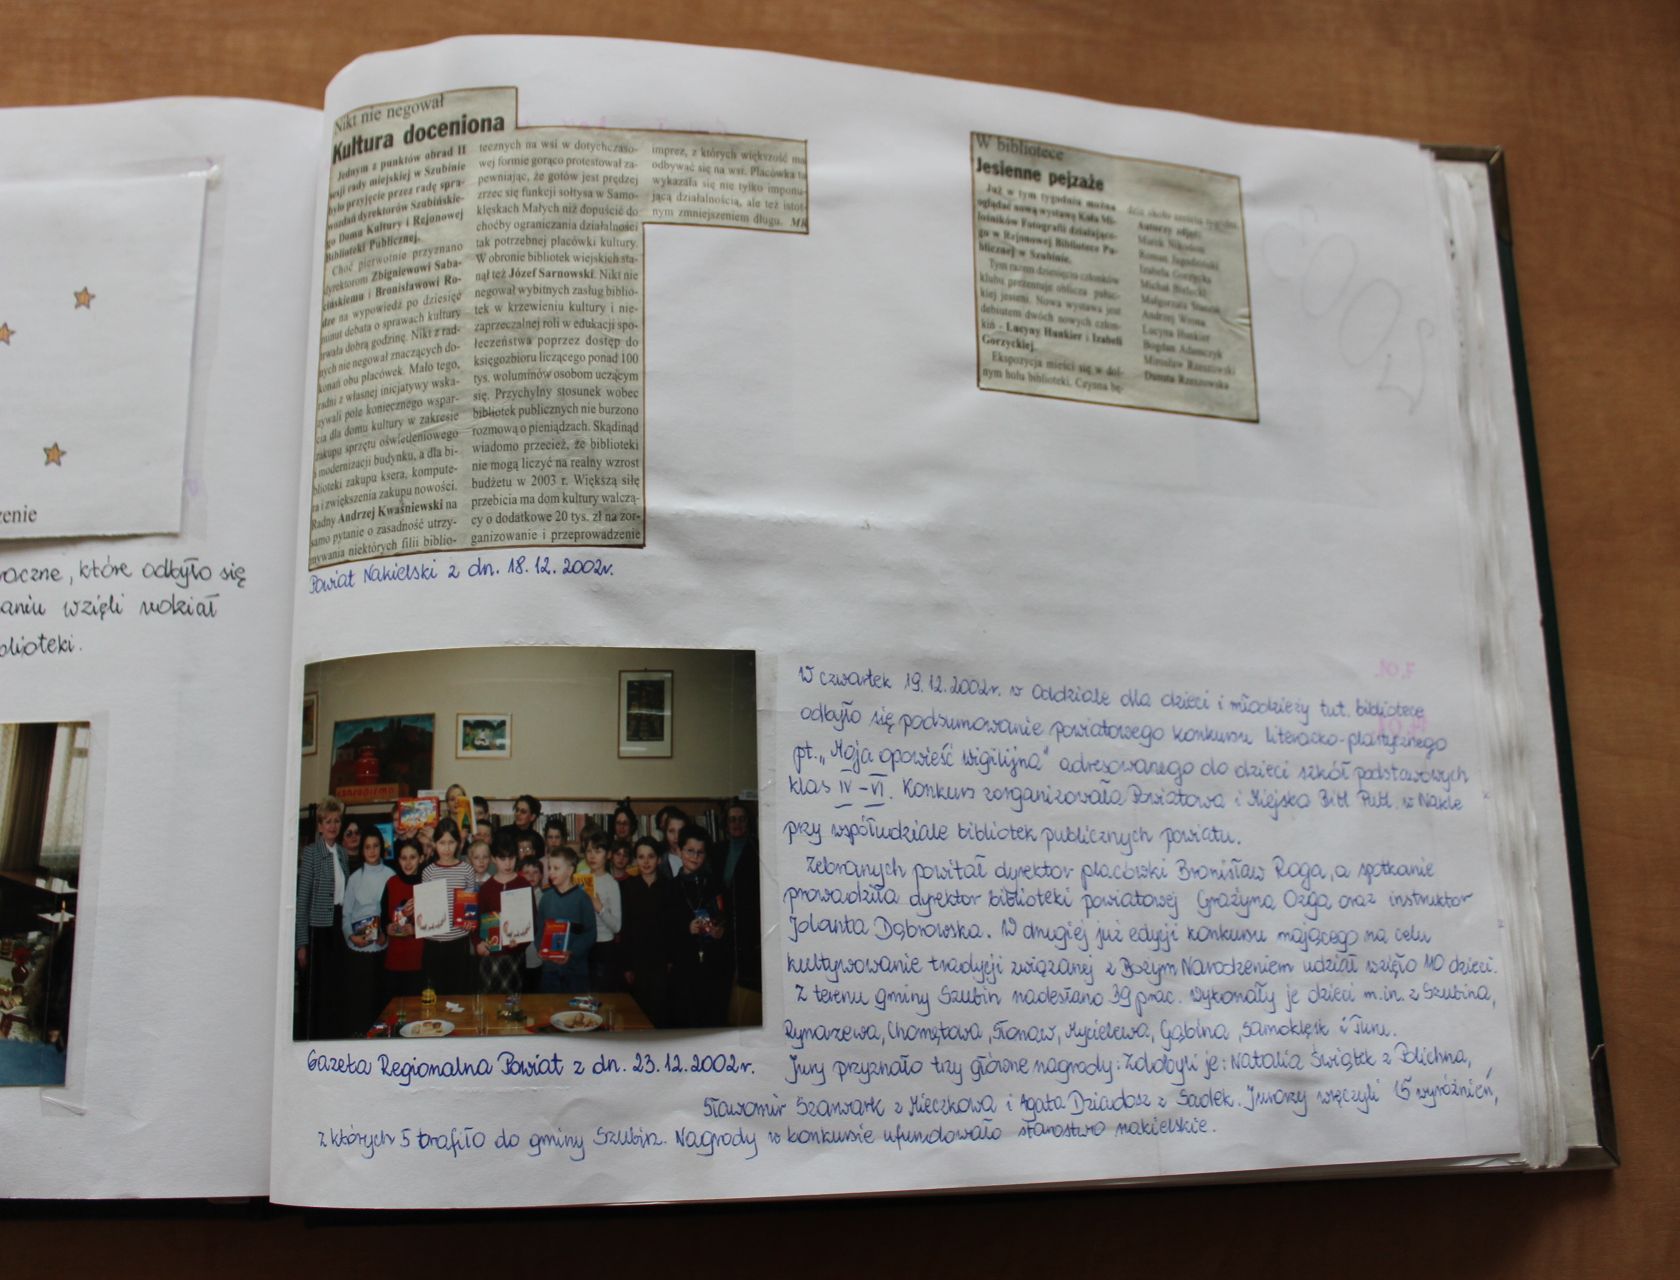 zenie
roczne, które odbyło się
aniu wzięli udział
blioteki.
Nikt nie negował
Kultura doceniona
Jednym z punktów obrad II
sesji rady miejskiej w Szubinie
było przyjęcie przez radę spra-
wozdań dyrektorów Szubińskie-
go Domu Kultury i Rejonowej
Biblioteki Publicznej.
Choć pierwotnie przyznano
dyrektorom Zbigniewowi Saba-
cińskiemu i Bronisławowi Ro-
dze na wypowiedź po dziesięć
minut debata o sprawach kultury
trwała dobrą godzinę. Nikt z rad-
nych nie negował znaczących do-
konań obu placówek. Mało tego,
radni z własnej inicjatywy wska-
zywali pole koniecznego wspar-
cia dla domu kultury w zakresie
zakupu sprzętu oświetleniowego
i modernizacji budynku, a dla bi-
blioteki zakupu ksera, kompute-
ra i zwiększenia zakupu nowości.
Radny Andrzej Kwaśniewski na
samo pytanie o zasadność utrzy-
mywania niektórych filii biblio-
tecznych na wsi w dotychczaso-
wej formie gorąco protestował za-
pewniając, że gotów jest prędzej
zrzec się funkcji sołtysa w Samo-
klęskach Małych niż dopuścić do
choćby ograniczania działalności
tak potrzebnej placówki kultury.
W obronie bibliotek wiejskich sta-
nął też Józef Sarnowski. Nikt nie
negował wybitnych zasług biblio-
tek w krzewieniu kultury i nie-
zaprzeczalnej roli w edukacji spo-
łeczeństwa poprzez dostęp do
księgozbioru liczącego ponad 100
tys. woluminów osobom uczącym
się. Przychylny stosunek wobec
bibliotek publicznych nie burzono
rozmową o pieniądzach. Skądinąd
wiadomo przecież, że biblioteki
nie mogą liczyć na realny wzrost
budżetu w 2003 r. Większą siłę
przebicia ma dom kultury walczą-
cy o dodatkowe 20 tys. zł na zor-
ganizowanie i przeprowadzenie
imprez, z których większość ma
odbywać się na wsi. Placówka ta
wykazała się nie tylko imponu-
jącą działalnością, ale też istot-
nym zmniejszeniem długu. MK
Powiat Nakielski z dn. 18.12.2002r.
W bibliotece
Jesienne pejzaże
Już w tym tygodniu można
oglądać nową wystawę Koła Mi-
łośników Fotografii działające-
go w Rejonowej Bibliotece Pu-
blicznej w Szubinie.
Tym razem dziesięciu członków
klubu prezentuje oblicza pałuc-
kiej jesieni. Nowa wystawa jest
debiutem dwóch nowych człon-
kiń - Lucyny Hunkier i Izabeli
Gorzyckiej.
Ekspozycja mieści się w dol-
nym holu biblioteki. Czynna bę-
dzie około
Autorzy zdjęć:
Marek
Roman Jagodziński
Izabela Gorzycka
Michał
Małgorzata
Andrzej
Lucyna Hunkier
Bogdan Adamczyk
Mirosław Rzeszowski
Danuta Rzeszowska
W czwartek 19.12.2002r. w Oddziale dla dzieci i młodzieży tut. bibliotece
odbyło się podsumowanie powiatowego konkursu literacko-plastycznego
pt. „Moja opowieść wigilijna" adresowanego do dzieci szkół podstawowych
klas IV-VI. Konkurs zorganizowała Powiatowa i Miejska Bibl. Publ. w Nakle
przy współudziale bibliotek publicznych powiatu.
Zebranych powitał dyrektor placówki Bronisław Roga, a spotkanie
prowadziła dyrektor biblioteki powiatowej Grażyna Ozga oraz instruktor
Jolanta Dąbrowska. W drugiej już edycji konkursu mającego na celu
kultywowanie tradycji związanej z Bożym Narodzeniem udział wzięło 110 dzieci.
Z terenu gminy Szubin nadesłano 39 prac. Wykonały je dzieci m.in. z Szubina,
Rynarzewa, Chomętowa, Słonaw, Mycielewa, Gąbina, Samoklęsk i Turu.
Jury przyznało trzy główne nagrody: Zdobyli je: Natalia Świątek z Polichna,
Sławomir Szarwark z Mieczkowa i Agata Dziadosz z Sadek. Jurorzy wręczyli 15 wyróżnień,
z których 5 trafiło do gminy Szubin. Nagrody w konkursie ufundowało starostwo nakielskie.
Gazeta Regionalna Powiat z dn. 23.12.2002r.